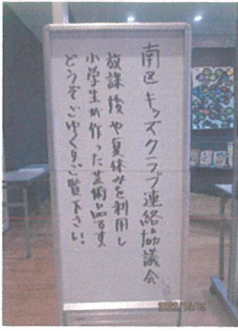 南区キッズクラブ連絡協議会
放課後や夏休みを利用し
小学生が作った芸術品です
どうぞごゆっくりご覧下さい。